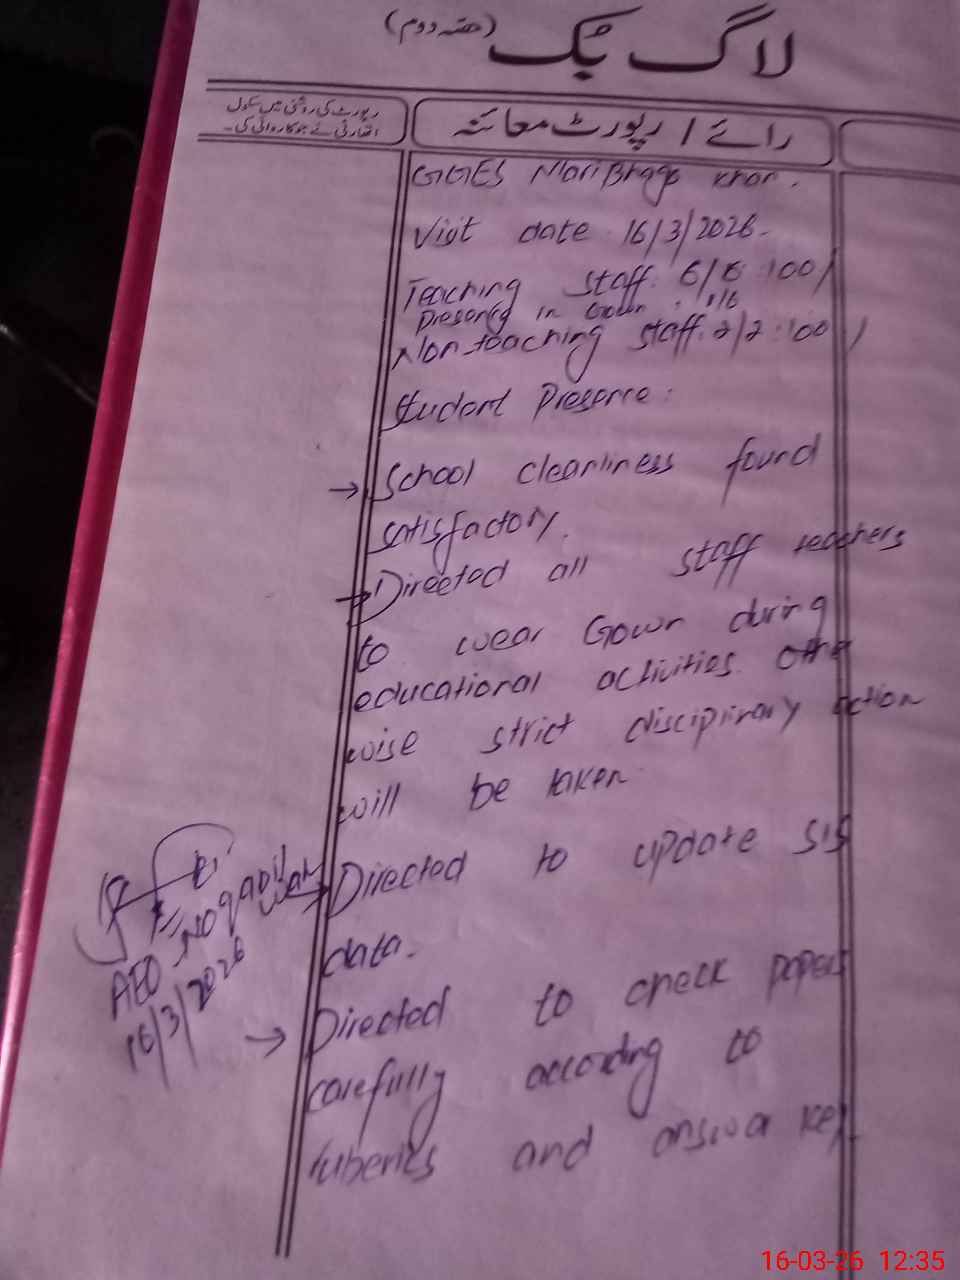 لاگ بک (حصہ دوم)
رپورٹ کی روشنی میں سکول
اتھارٹی نے جو کاروائی کی۔
رائے / رپورٹ معائنہ
GGES Mari Bhago Khan.
Visit date 16/3/2026.
Teaching staff: 6/6: 100/
Presence in Gown :
Non-teaching staff: 2/2: 100 /
Student Presence:
→ School cleanliness found
satisfactory.
→ Directed all staff teachers
to wear Gown during
educational activities. Other
wise strict disciplinary action
will be taken.
→ Directed to update SIS
data.
→ Directed to check papers
carefully according to
ruberics and answer key.
AEO
16/3/2026
16-03-26 12:35